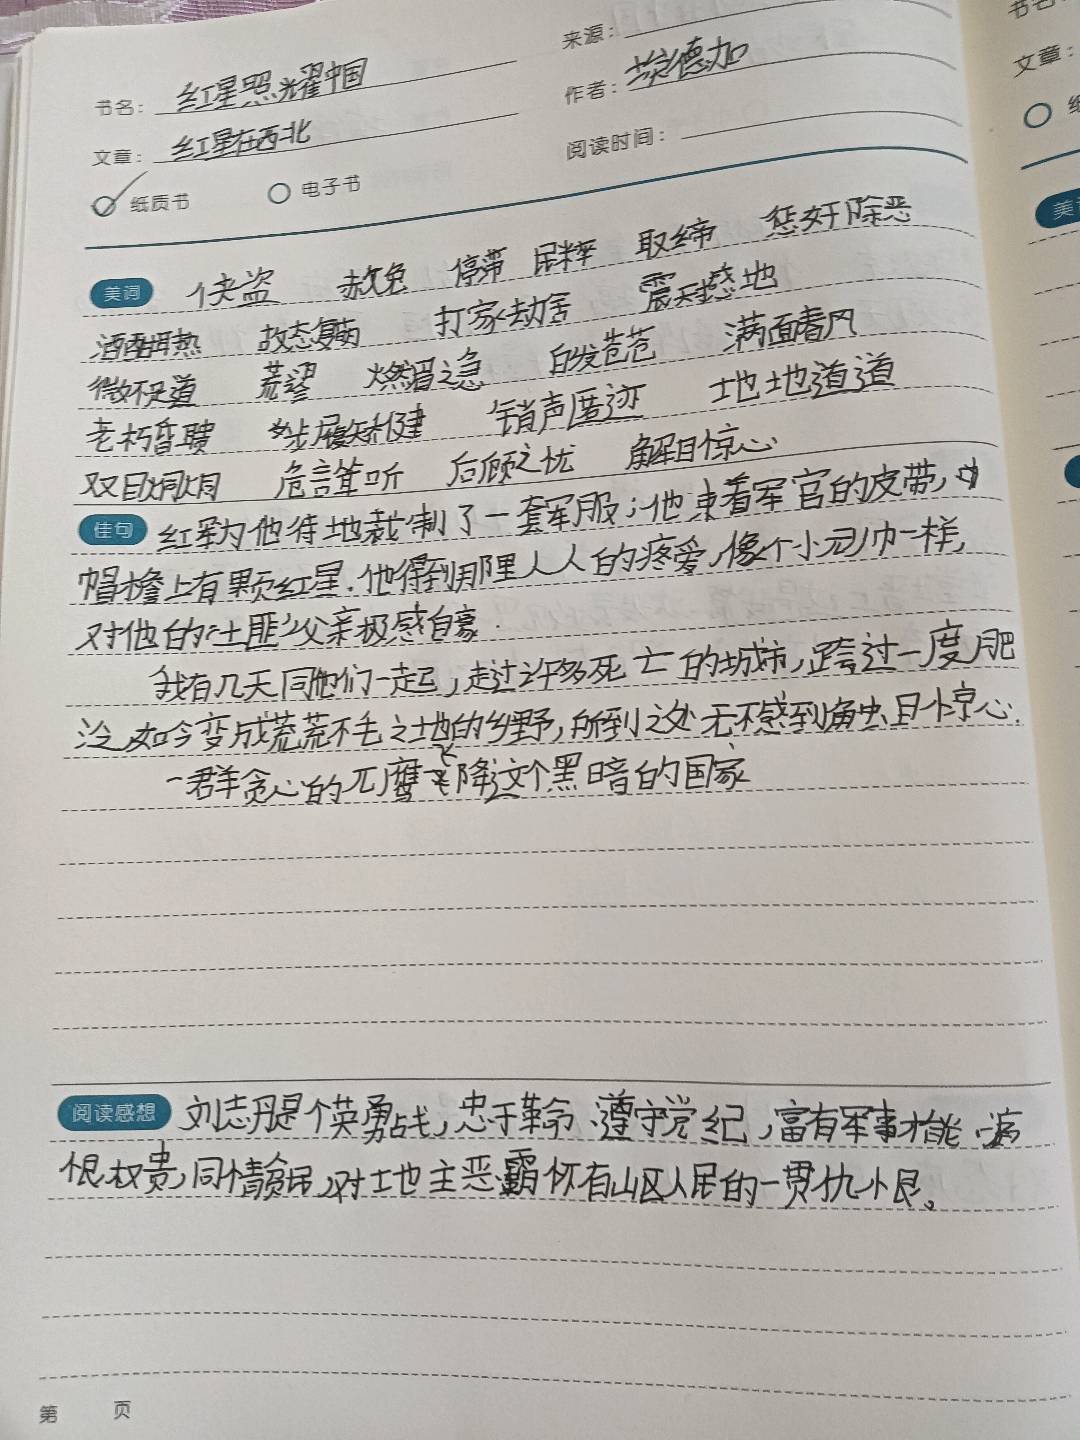 来源：
书名：红星照耀中国
作者：埃德加
文章：红星在西北
阅读时间：
纸质书 电子书
书名
文章：
美词 侠盗 赦免 停滞 民粹 取缔 惩奸除恶
酒酣耳热 故态复萌 打家劫舍 震天撼地
微不足道 荒谬 燃眉之急 白发苍苍 满面春风
老朽昏聩 步履矫健 销声匿迹 地地道道
双目炯炯 危言耸听 后顾之忧 触目惊心
佳句 红军为他特地裁制了一套军服；他束着军官的皮带，
帽檐上有颗红星．他得到那里人人的疼爱，像个小司巾一样，
对他的“土匪”父亲极感自豪．
我有几天同他们一起，走过许多死亡的城市，跨过一度肥
沃如今变成荒荒不毛之地的乡野，所到之处无不感到触目惊心．
一群贪心的兀鹰飞降这个黑暗的国家
阅读感想 刘志丹是个英勇战，忠于革命、遵守党纪，富有军事才能，痛
恨权贵，同情贫民，对土地主恶霸怀有山区人民的一贯仇恨。
第 页